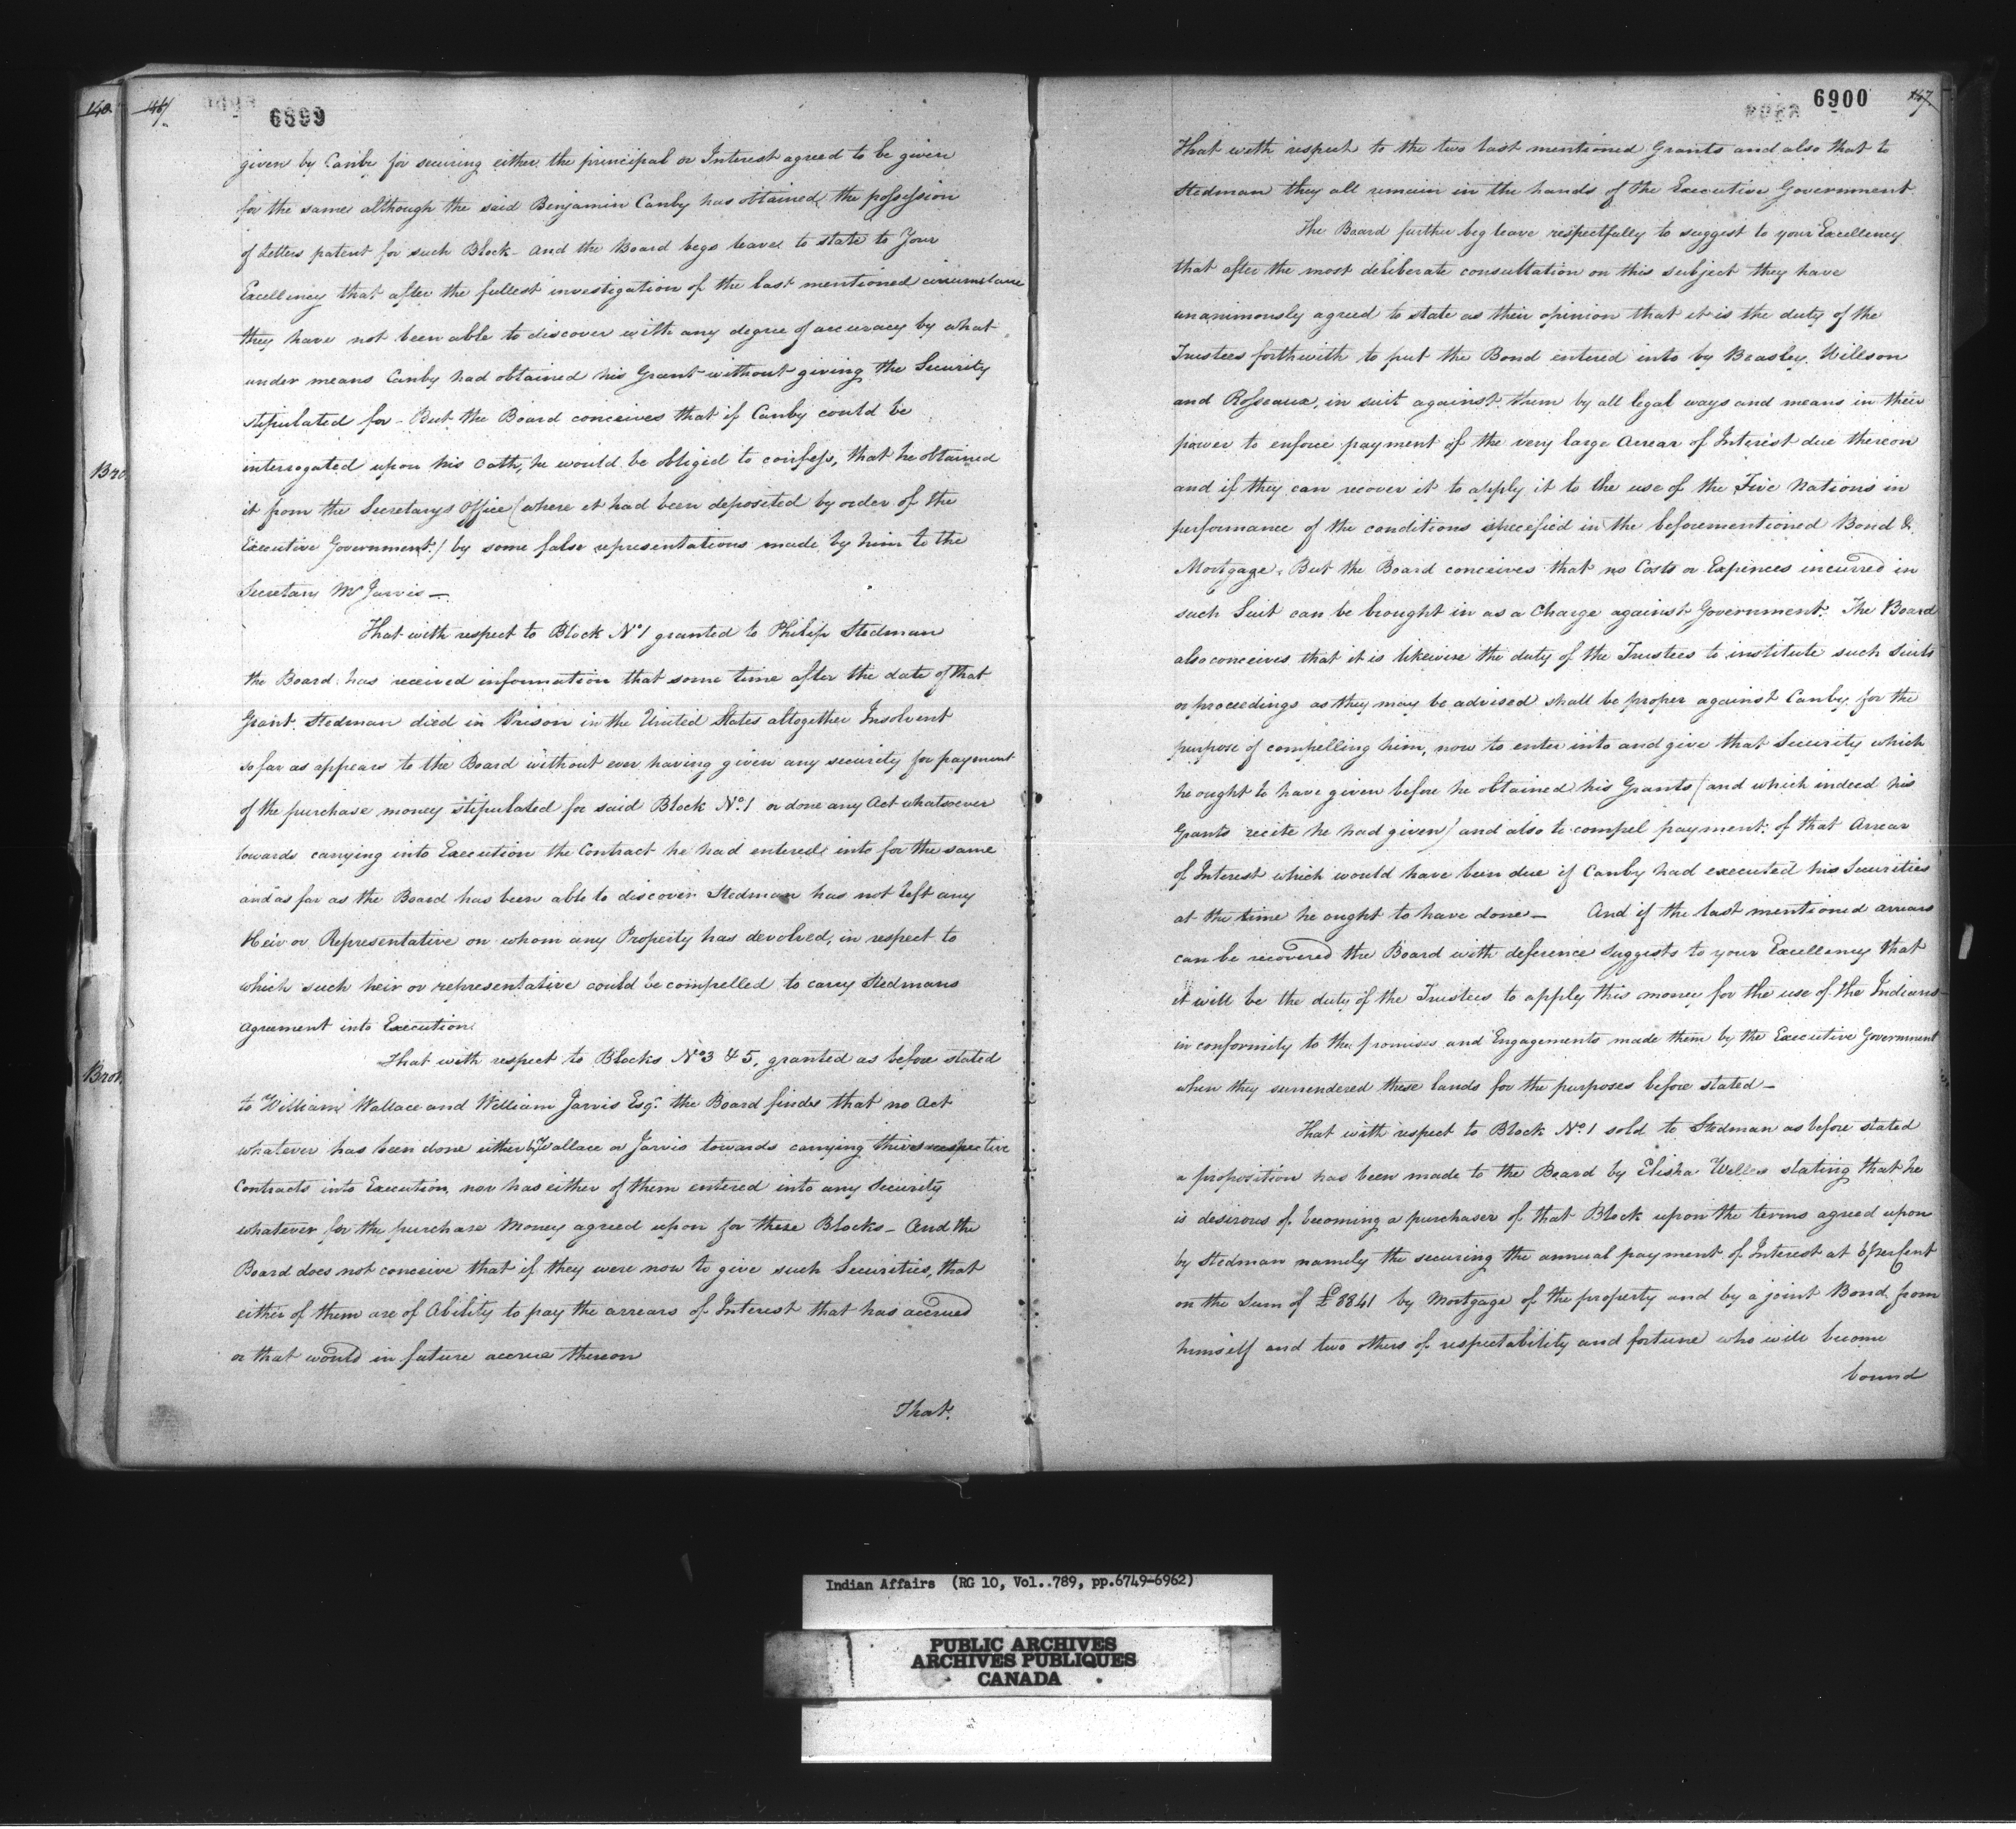 140.
146.
6899
given by Canby for securing either the principal or Interest agreed to be given
for the same although the said Benjamin Canby has obtained the possession
of letters patent for such Block - and the Board begs leave to state to Your
Excellency that after the fullest investigation of the last mentioned circumstance
they have not been able to discover with any degree of accuracy by what
under means Canby had obtained his Grant without giving the Security
stipulated for - But the Board conceives that if Canby could be
interrogated upon his Oath, he would be obligid to confess, that he obtained
Bro.
it from the Secretarys Office (where it had been deposited by order of the
Executive Government.) by some false representations made by him to the
Secretary Mr Jarvis —
That with respect to Block No 1 granted to Philip Stedman
the Board has received information that some time after the date of that
Grant Stedman died in Prison in the United States altogether Insolvent
so far as appears to the Board without ever having given any security for payment
of the purchase money stipulated for said Block No. 1 or done any Act whatsoever
towards carrying into Execution the Contract he had entered into for the same
and as far as the Board has been able to discover Stedman has not left any
Heir or Representative on whom any Property has devolved, in respect to
which such heir or representative could be compelled to carry Stedmans
Agreement into Execution
That with respect to Blocks No 3 & 5, granted as before stated
Brot.
to William Wallace and William Jarvis Esqr. the Board finds that no Act
whatever has been done either by Wallace or Jarvis towards carrying their respective
Contracts into Execution, nor has either of them entered into any Security
whatever for the purchase Money agreed upon for these Blocks - And the
Board does not conceive that if they were now to give such Securities, that
either of them are of Ability to pay the arrears of Interest that has accrued
or that would in future accrue thereon
That.
6900
147.
That with respect to the two last mentioned Grants and also that to
Stedman they all remain in the hands of the Executive Government.
The Board further beg leave respectfully to suggest to your Excellency
that after the most deliberate consultation on this subject they have
unanimously agreed to state as their opinion that it is the duty of the
Trustees forthwith to put the Bond entered into by Beasley. Willson
and Rosseaux, in suit against them by all legal ways and means in their
power to enforce payment of the very large Arrear of Interest due thereon
and if they can recover it to apply it to the use of the Five Nations in
performance of the conditions specefied in the beforementioned Bond &
Mortgage. But the Board conceives that no Costs or Expences incurred in
such Suit can be brought in as a Charge against Government. The Board
also conceives that it is likewise the duty of the Trustees to institute such Suits
or proceedings as they may be advised shall be proper against Canby for the
purpose of compelling him, now to enter into and give that Security which
he ought to have given before he obtained his Grants (and which indeed his
Grants recite he had given) and also to compel payment of that Arrear
of Interest which would have been due if Canby had executed his Securities
at the time he ought to have done — And if the last mentioned arrears
can be recovered the Board with deference suggests to your Excellency that
it will be the duty of the Trustees to apply this money for the use of the Indians
in conformity to the promises and Engagements made them by the Executive Government
when they surrendered these lands for the purposes before stated —
That with respect to Block No. 1 sold to Stedman as before stated
a proposition has been made to the Board by Elisha Welles stating that he
is desirous of becoming a purchaser of that Block upon the terms agreed upon
by Stedman namely the securing the annual payment of Interest at 6 per Cent
on the Sum of £8841 by Mortgage of the property and by a joint Bond from
himself and two others of respectability and fortune who will become
bound
Indian Affairs (RG 10, Vol..789, pp.6749-6962)
PUBLIC ARCHIVES
ARCHIVES PUBLIQUES
CANADA